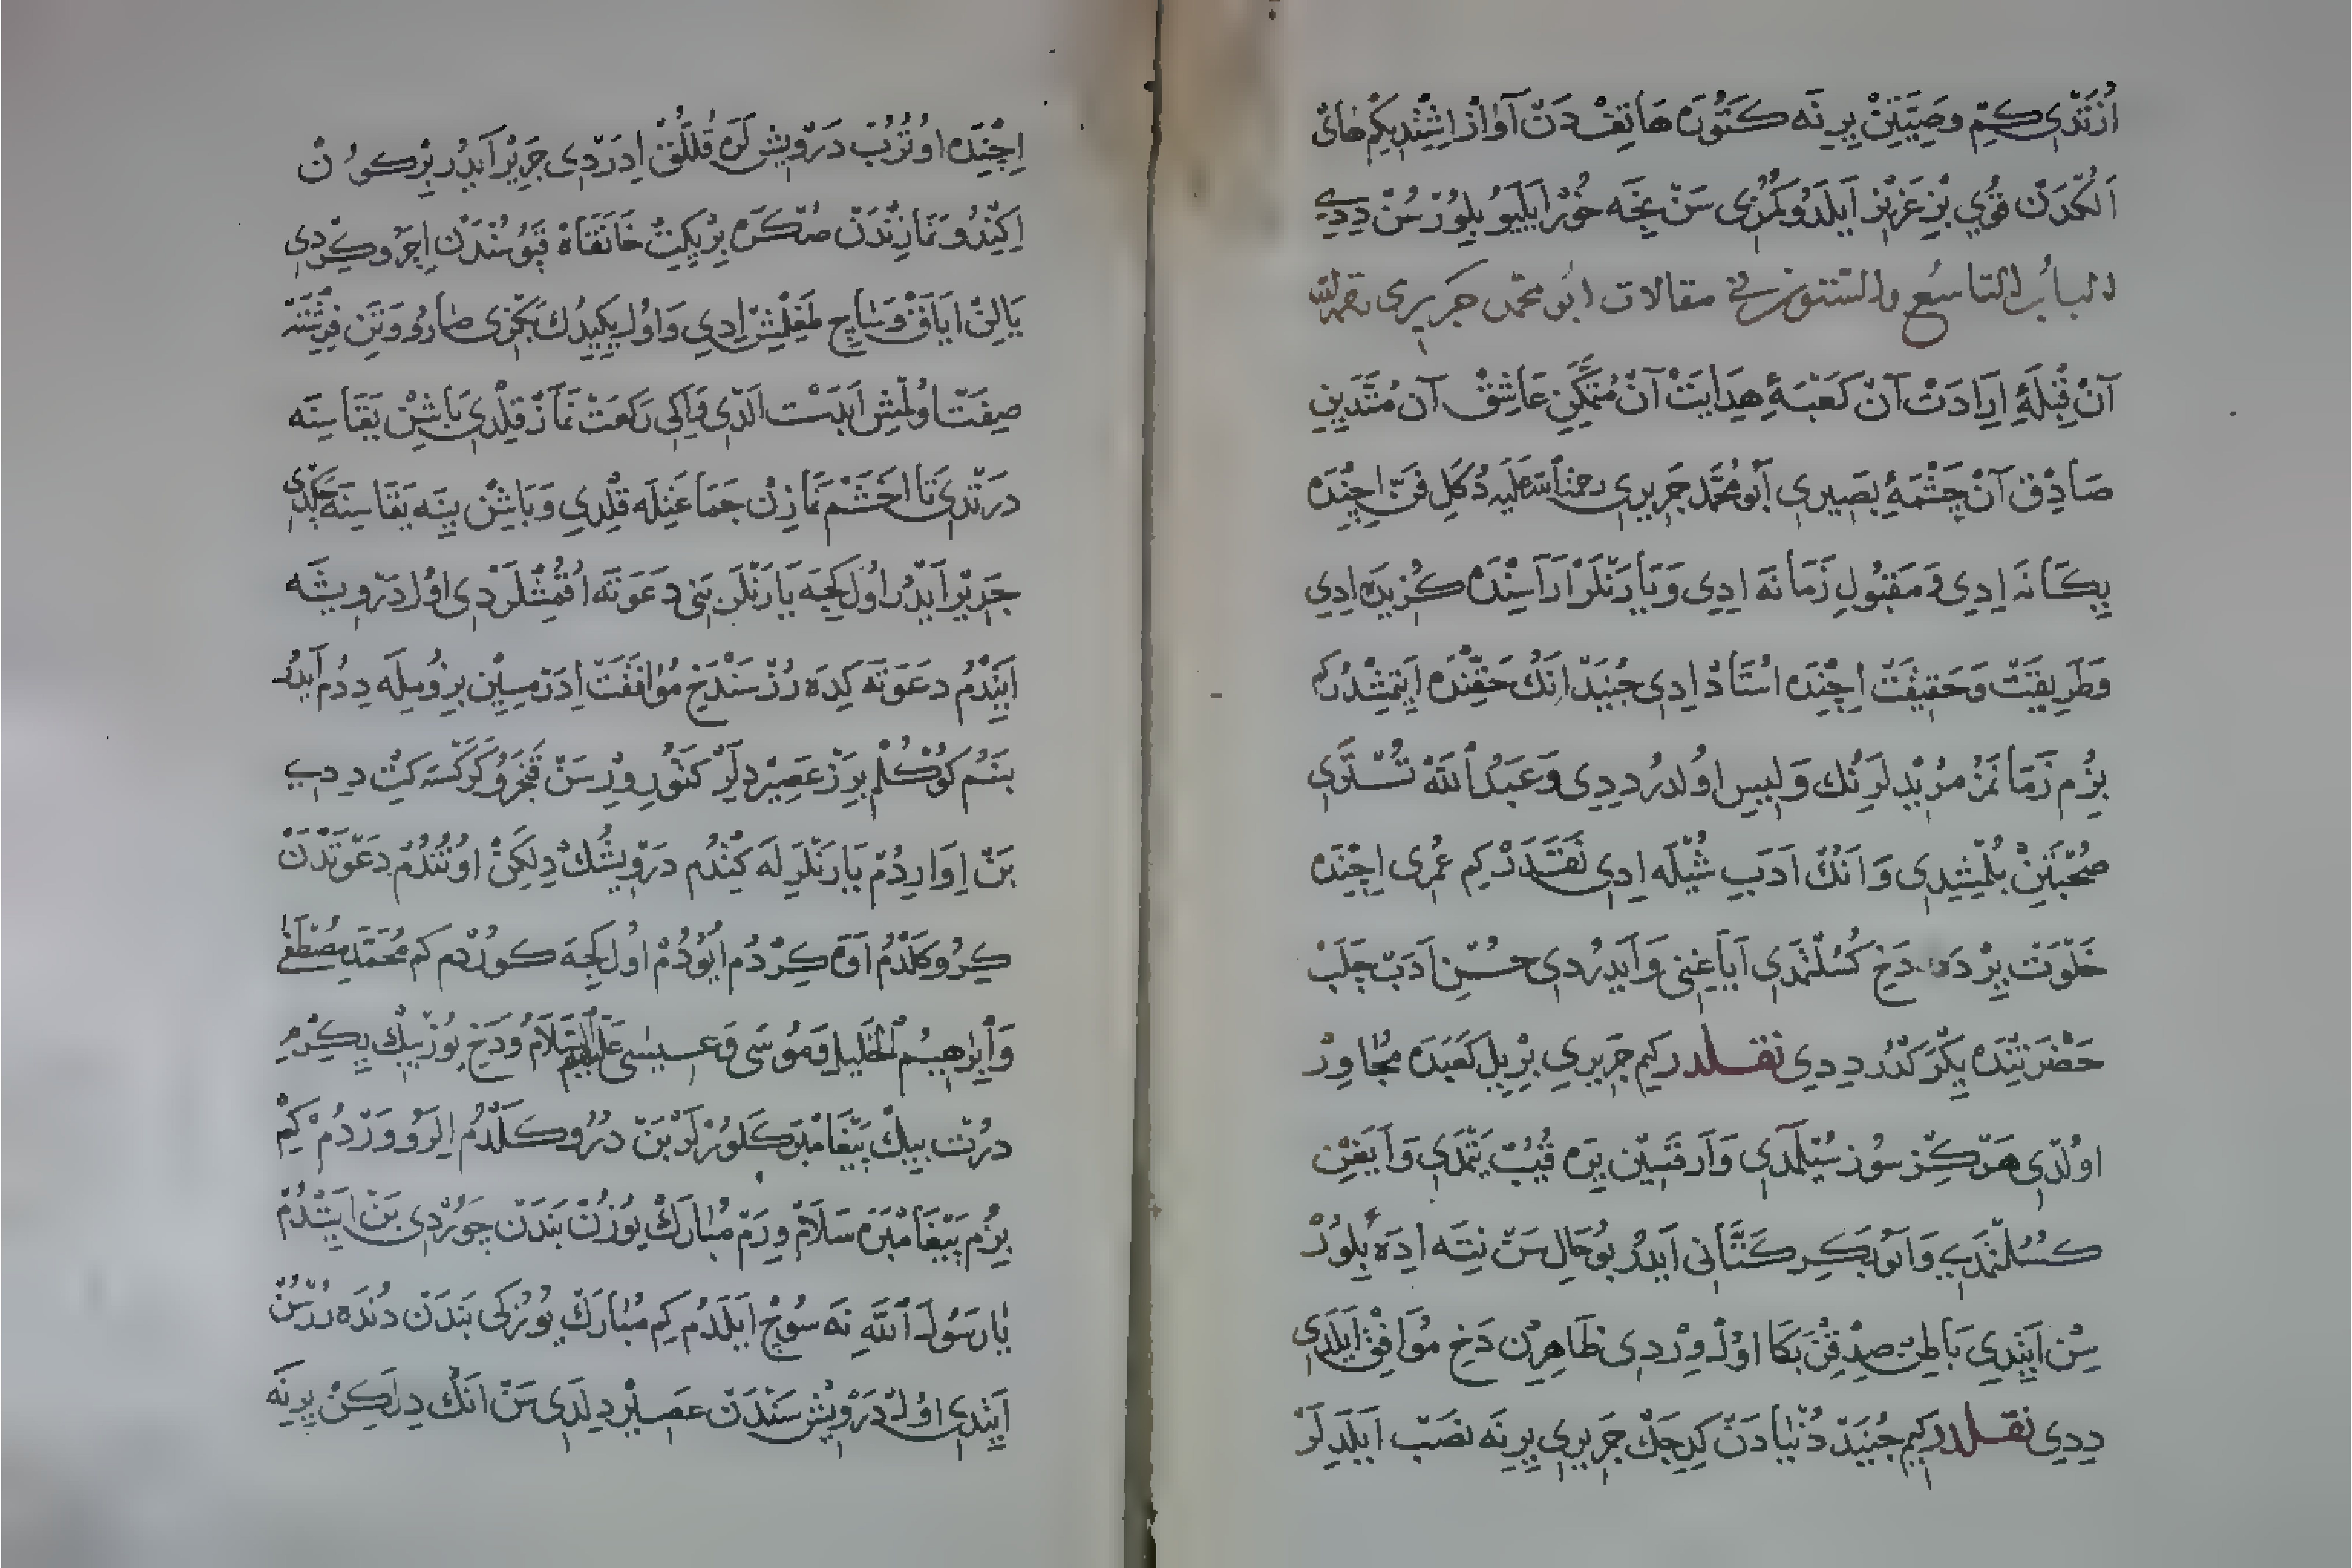 اُزَتْدِی كیم وصِیَّتِنْ یِرِنَه كَتُورَه هَاتِفْدَنْ آوَازْ اِشِتْدِیكِمْ هَایْ
اَلْكُمْدَنْ قوُي بِزْ عَزِیز اَیلَدُوكُمُزِی سَنْ نِجَه خُوْر اَیلَیُو بِلُورْسُنْ دِدِي
الباب التاسع والستون في مقالات ابو محمد جریری رحمه الله
آنْ قِبْلَۀِ اِرَادَتْ آنْ كَعْبَۀِ هِدَایَتْ آنْ مُتَمَكِّنِ عَاشِقْ آن مُتَدَیِّنِ
صَادِقْ آنْ چَشْمَۀِ بَصِیرِی اَبُو مُحَمَّد جَرِیرِی رحمة اللّٰه عَلَیْه دُكَلِ فَنْ اِچِنْدَه
یِكَانَه اِدِي وَ مَقْبُولِ زَمَانَه اِدِی وَیَارَنْلَرْ اَرَاسِنْدَه كُزِیدَه اِدِی
وَطَرِیقَتْ وَحَقِیقَتْ اِچِنْدَه اُسْتَاذْ اِدِی جُنَیْدْ اَنُكْ حَقِّنْدَه اَیْتمِشْدُر كم
بِزُم زَمَانَمُزْ مرُیدْلَرِنُك وَلِیسِ اوُلدرُ دِدِی وَعَبْدُ اللّٰه تُسْتَرِی
صُحْبَتِنْ بُلْمِشِدِی وَاَنُكْ اَدَبِ شُیْلَه اِدِی نَقَدَرْ كِم عُمْرِی اِچِنْدَه
خَلْوَتْ یِرْدَه دَخِ كُسُلْتْمَدِی اَیَاغِنِی وَاَیدِرْدِی حُسْنِ اَدَبْ چَلَبْ
حَضْرَتِنْدَه یِكْرَكْدُر دِدِی نقلدر كیم جَرِیرِي بِرْ یِل كَعْبَدَه مُجَاوِرْ
اوُلْدِی هَرْكِزْ سوُز سُیْلَمَدِي وَاَرْقَسِیْن یِرَه قُیُبْ یَتْمَدِي وَاَیَغِنْ
كُسُلْتْمَدِي وَاَبُو بَكِر كَتَّانِی اَیدُرْ بُو حَالِ سَنْ نِیتَه اِدَه بِلُورْ
سِنْ اَیتْدِی بَاطِنْ صِدْقِنْ بَكَا اوُلْ وِرْدِی ظَاهِرُن دَخِ مُوَافِقْ اَیلَدِی
دِدِي نقلدر كیم جُنَیْدْ دُنْیَادَنْ كِدِجَكْ جَرِیرِي یِرِنَه نَصَبْ اَیلَدِلَرْ
اِچِنْدَه اوُتُرُبْ دَرْوِیشْلَرَه قُلْلُقْ اِدَرْدِی جَرِیرْ اَیدُر بِرْ كوُنْ
اِكِنْدُو نَمَازِنْدَنْ صُكْرَه بِرْ یِكِتْ خَانَقَاهْ قَپُوسُنْدَنْ اِچَرُو كِرْدِي
یَالِنْ اَیَاقْ وَسَاچِ طَغِلْمِشْ اِدِي وَاوُل یِكِیدُك بَكْزِی صَارُو وَتَن فِرِشْتَه
صِفَتْ اوُلْمِشْ اَبدَسْت اَلْدِي وَاِكِی رَكعَتْ نَمَازْ قِلْدِي بَاشِنْ یَقَاسِنَه
دَرَتْدِي تَا اَخْشَمْ نَمَازِنْ جَمَاعَتِلَه قِلْدِي وَبَاشِنْ یِنَه یَقَاسِنَه چَكْدِی
جَرِیْرْ اَیدُر اوُل كِجَه یَارَنْلَرْ بَنِی دَعَوَتَه اُقُمْشْلَرْدِی اوُل دَرْوِیشَه
اَیتْدُمْ دَعَوَتَه كِدَه رُزْ سَنْدَخِ مُوَافَقَتْ اِدَرْمِسِیْن بِزُومِلَه دِدُمْ اَیدُر
بَنُمْ كوُكُلُمْ بِرَزْ عَصِیرْ دِلَرْ كَتُورِ وِرِسَنْ فَخِرْ وَكَرْ كَسَه كِتْ دِدِي
بَنْ اِوَارِدُمْ یَارَنْلَرِلَه كِتْدُم دَرْوِیشُكْ دِلَكِنْ اوُنُتْدُمْ دَعَوَتْدَنْ
كِرُو كَلْدُمُ اَوَه كِرْدُم اُیُوْدُمْ اوُل كِجَه كوُرْدُم كم مُحَمَّدِ مُصْطَفٰی
وَاِبْرَاهِیمُ الخَلِیلِ وَمُوسَی وَعِیسٰی عَلَیْهِمُ السَّلَامُ وَدَخِ یُوزْ بِیكْ یِكِرْمِ
دُرْتْ بِیكْ پَیْغَامْبَرْ كَلُورْلَرْ بَنْ دُرُو كَلْدُمْ اِلَرُو وَرْدُمْ كِمْ
بِزُم پَیْغَامْبَرَه سَلَامْ وِرَمْ مُبَارَكْ یُوزُنْ بَنْدَنْ چَوُرْدِی بَنْ اَیتْدُمْ
یَا رَسُولَ اللّٰهِ نَه سُوچْ اَیلَدُم كِم مُبَارَكْ یُوزُكِی بَنْدَنْ دُنْدَه رُرْسِنْ
اَیتْدِی اوُلْ دَرْوِیشْ سَنْدَنْ عَصِیرْ دِلَدِی سَنْ اَنُكْ دِلَكِنْ یِرِنَه